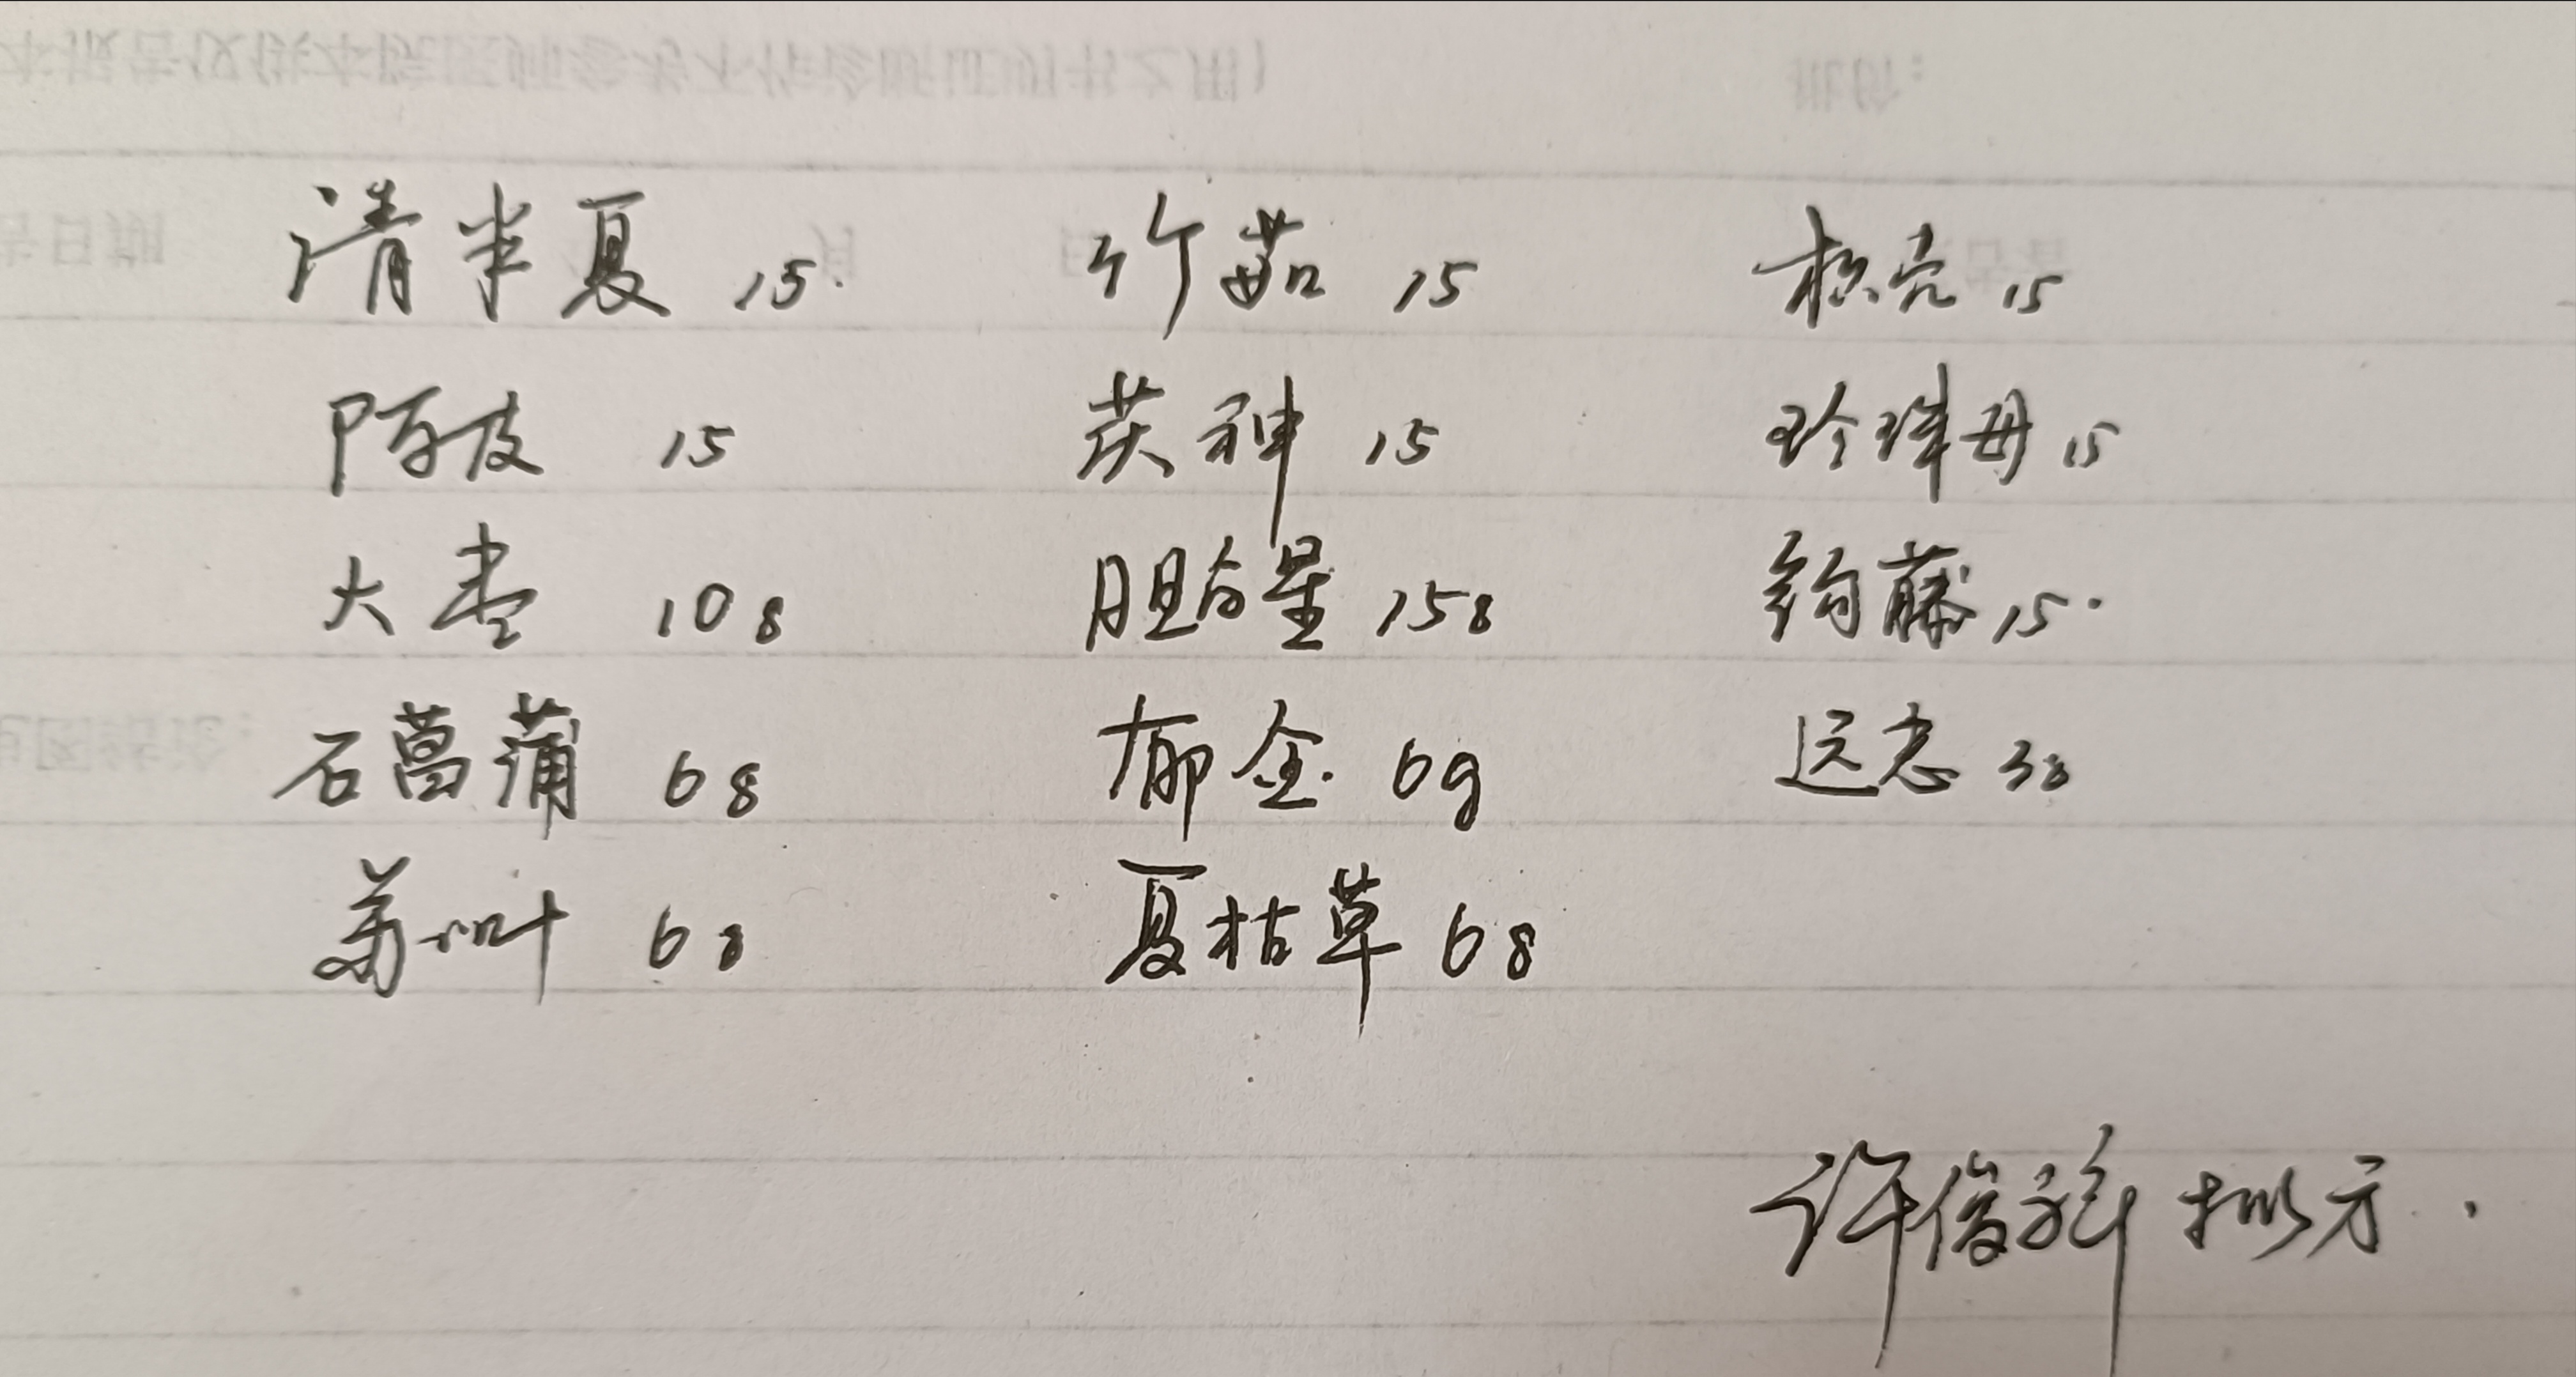 清半夏 15. 竹茹 15 枳壳 15
陈皮 15 茯神 15 珍珠母 15
大枣 10g 胆南星 15g 钩藤 15.
石菖蒲 6g 郁金 6g 远志 3g
苏叶 6g 夏枯草 6g
许俊 拟方.